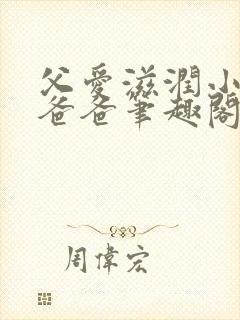 父愛滋潤小
爸爸筆趣閣
周偉宏